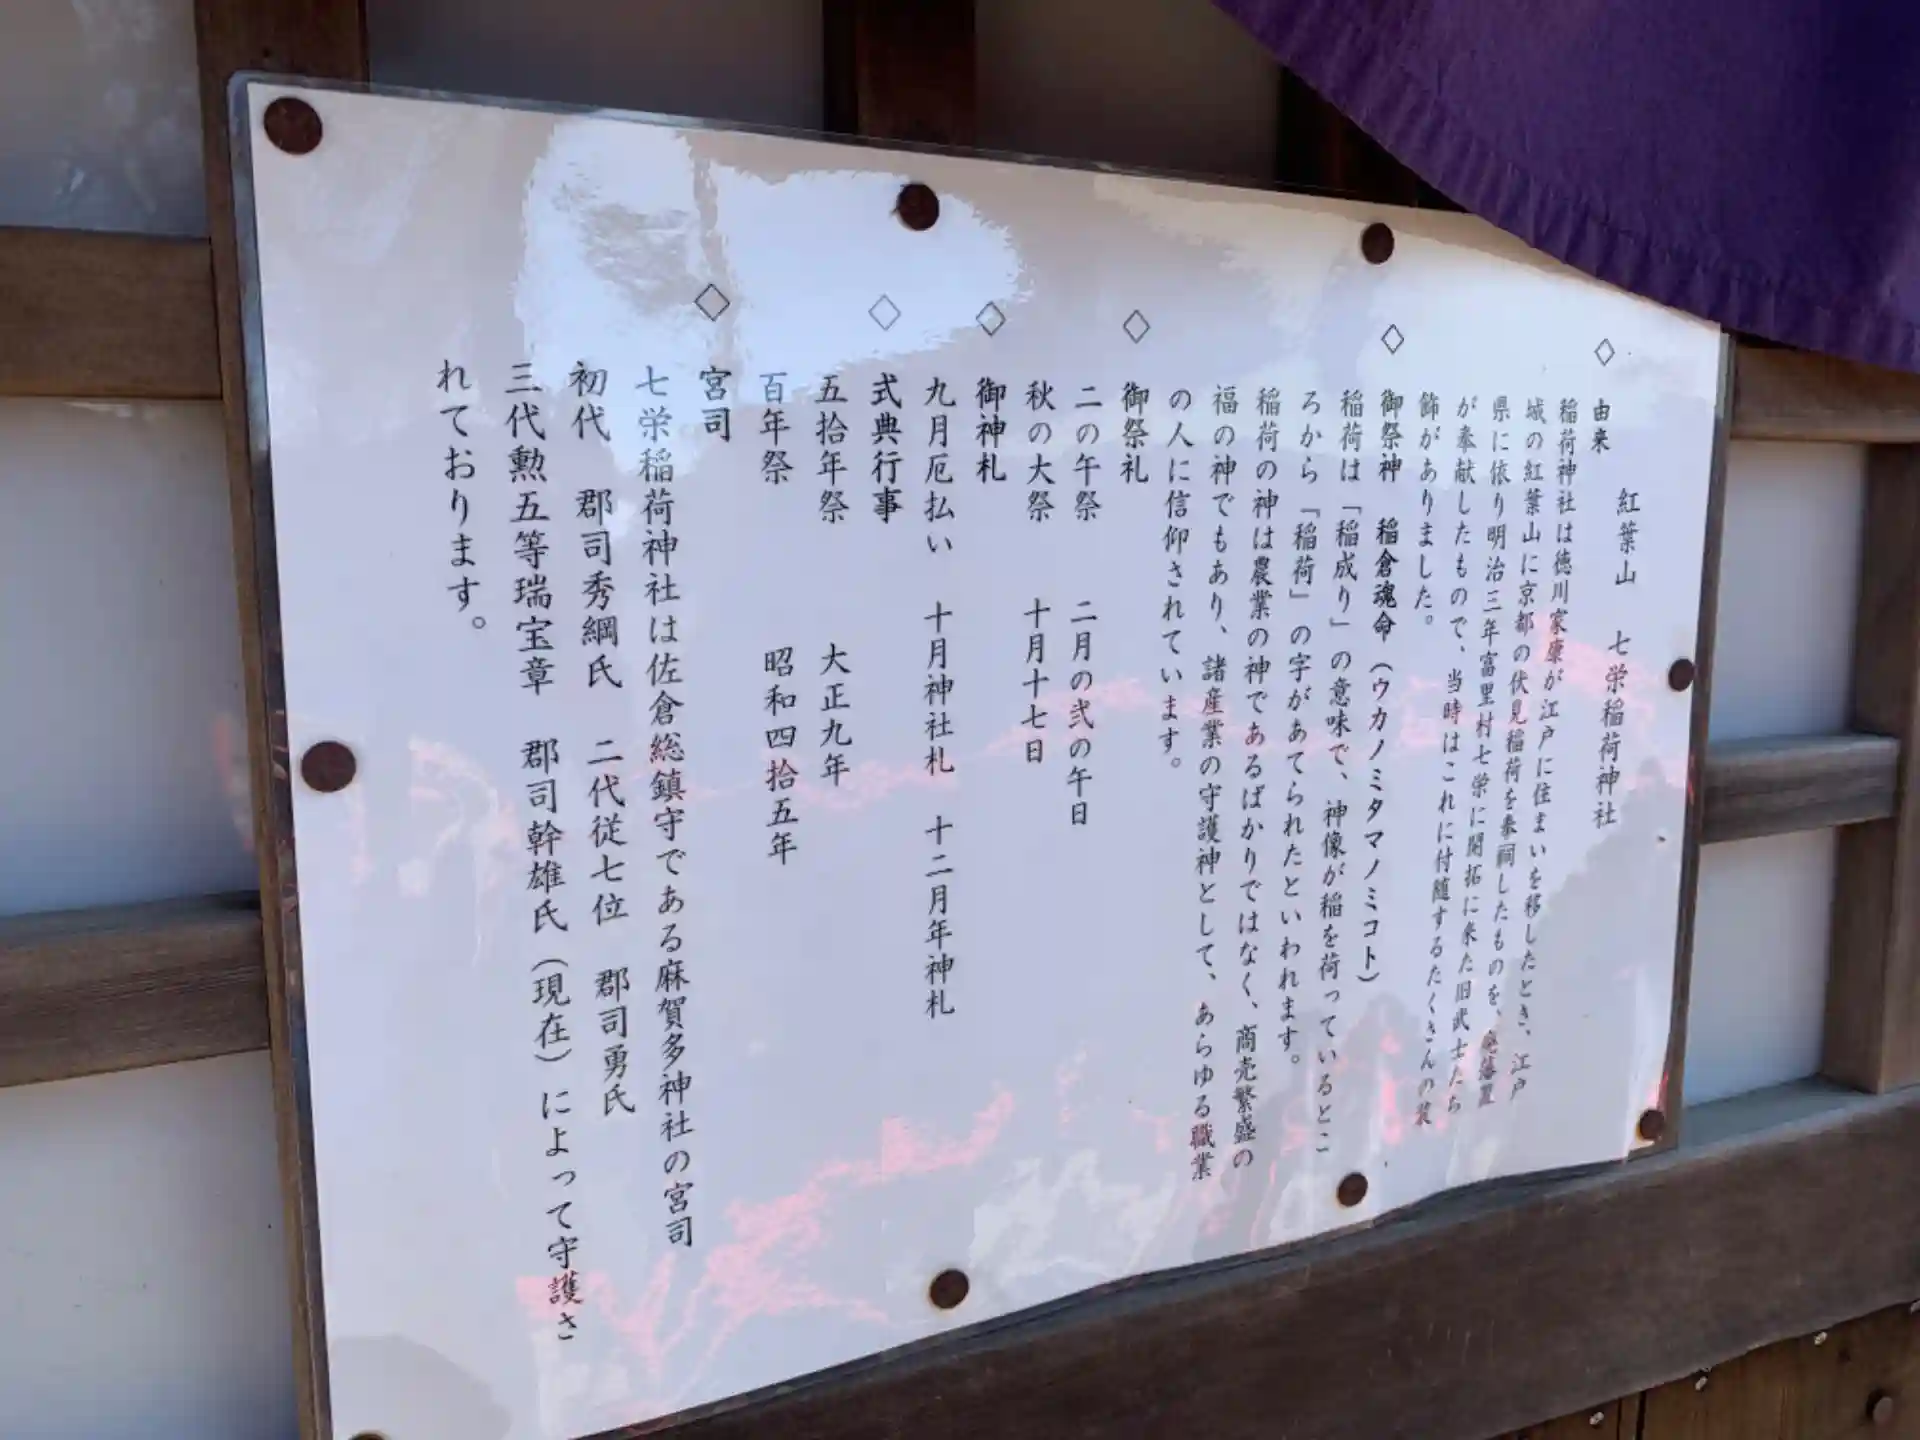 紅葉山 七栄稲荷神社
◇ 由来
稲荷神社は徳川家康が江戸に住まいを移したとき、江戸
城の紅葉山に京都の伏見稲荷を奉祠したものを、廃藩置
県に依り明治三年富里村七栄に開拓に来た旧武士たち
が奉献したもので、当時はこれに付随するたくさんの装
飾がありました。
◇ 御祭神 稲倉魂命（ウカノミタマノミコト）
稲荷は「稲成り」の意味で、神像が稲を荷っているとこ
ろから「稲荷」の字があてられたといわれます。
稲荷の神は農業の神であるばかりではなく、商売繁盛の
福の神でもあり、諸産業の守護神として、あらゆる職業
の人に信仰されています。
◇ 御祭礼
二の午祭 二月の弐の午日
秋の大祭 十月十七日
◇ 御神札
九月厄払い 十月神社札 十二月年神札
◇ 式典行事
五拾年祭 大正九年
百年祭 昭和四拾五年
◇ 宮司
七栄稲荷神社は佐倉総鎮守である麻賀多神社の宮司
初代 郡司秀綱氏 二代従七位 郡司勇氏
三代勲五等瑞宝章 郡司幹雄氏（現在）によって守護さ
れております。